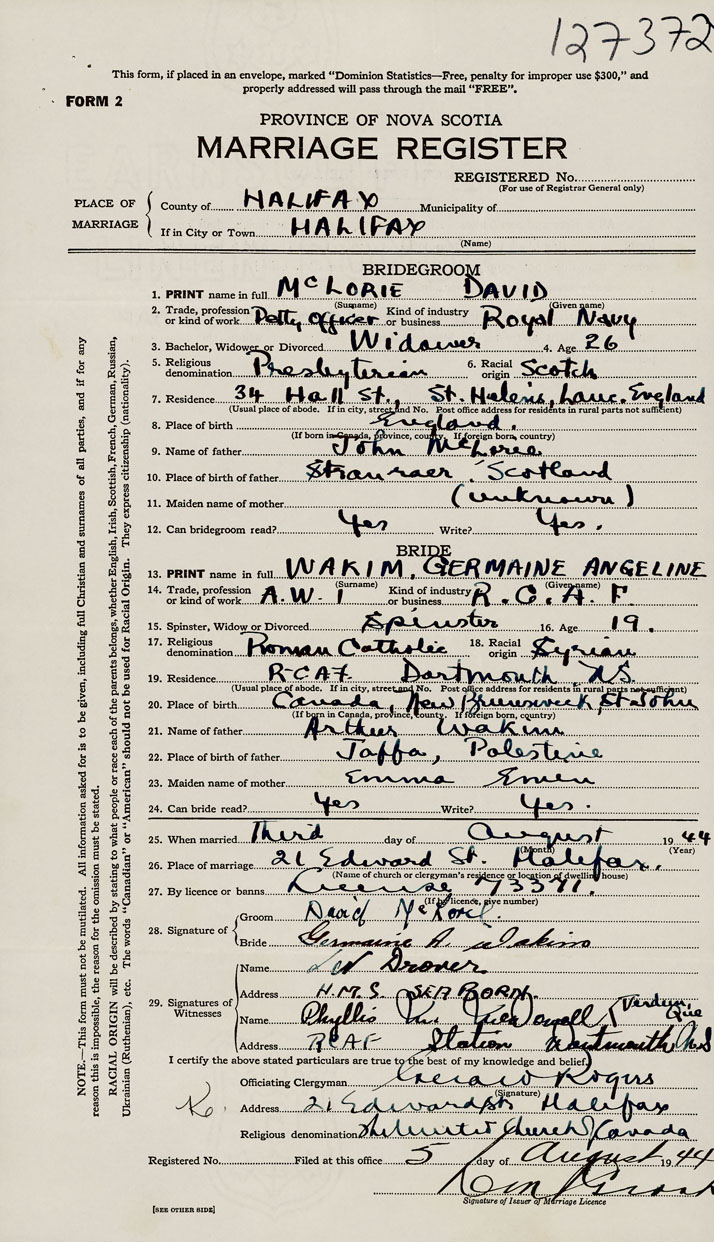 127372
This form, if placed in an envelope, marked “Dominion Statistics—Free, penalty for improper use $300,” and
properly addressed will pass through the mail “FREE”.
FORM 2
PROVINCE OF NOVA SCOTIA
MARRIAGE REGISTER
REGISTERED No.
(For use of Registrar General only)
PLACE OF MARRIAGE
County of HALIFAX Municipality of
If in City or Town HALIFAX
(Name)
BRIDEGROOM
1. PRINT name in full McLORIE DAVID
(Surname) (Given name)
2. Trade, profession or kind of work Petty Officer Kind of industry or business Royal Navy
3. Bachelor, Widower or Divorced Widower 4. Age 26
5. Religious denomination Presbyterian 6. Racial origin Scotch
7. Residence 34 Hall St., St. Helens, Lanc. England
(Usual place of abode. If in city, street and No. Post office address for residents in rural parts not sufficient)
8. Place of birth England.
(If born in Canada, province, county. If foreign born, country)
9. Name of father John McLorie
10. Place of birth of father Stranraer, Scotland
11. Maiden name of mother (unknown)
12. Can bridegroom read? Yes Write? Yes.
BRIDE
13. PRINT name in full WAKIM, GERMAINE ANGELINE
(Surname) (Given name)
14. Trade, profession or kind of work A.W. 1 Kind of industry or business R.C.A.F
15. Spinster, Widow or Divorced Spinster 16. Age 19.
17. Religious denomination Roman Catholic 18. Racial origin Syrian
19. Residence RCAF Dartmouth N.S.
(Usual place of abode. If in city, street and No. Post office address for residents in rural parts not sufficient)
20. Place of birth Canada, New Brunswick, St John
(If born in Canada, province, county. If foreign born, country)
21. Name of father Arthur Wakim
22. Place of birth of father Jaffa, Palestine
23. Maiden name of mother Emma Emen
24. Can bride read? Yes Write? Yes.
25. When married Third day of August 1944
(Month) (Year)
26. Place of marriage 21 Edward St. Halifax.
(Name of church or clergyman's residence or location of dwelling house)
27. By licence or banns License 73371.
(If by licence, give number)
28. Signature of
Groom David McLorie.
Bride Germaine A. Wakim
29. Signatures of Witnesses
Name Drover
Address H.M.S. SEABORN.
Name Phyllis M. Verdun, Que
Address RCAF Station Dartmouth N.S
I certify the above stated particulars are true to the best of my knowledge and belief.
Officiating Clergyman Rogers
(Signature)
Address 21 Edward St Halifax
Religious denomination United Church of Canada
Registered No. Filed at this office 5 day of August 1944
Signature of Issuer of Marriage Licence
[SEE OTHER SIDE]
NOTE.—This form must not be mutilated. All information asked for is to be given, including full Christian and surnames of all parties, and if for any
reason this is impossible, the reason for the omission must be stated.
RACIAL ORIGIN will be described by stating to what people or race each of the parents belongs, whether English, Irish, Scottish, French, German, Russian,
Ukrainian (Ruthenian), etc. The words “Canadian” or “American” should not be used for Racial Origin. They express citizenship (nationality).